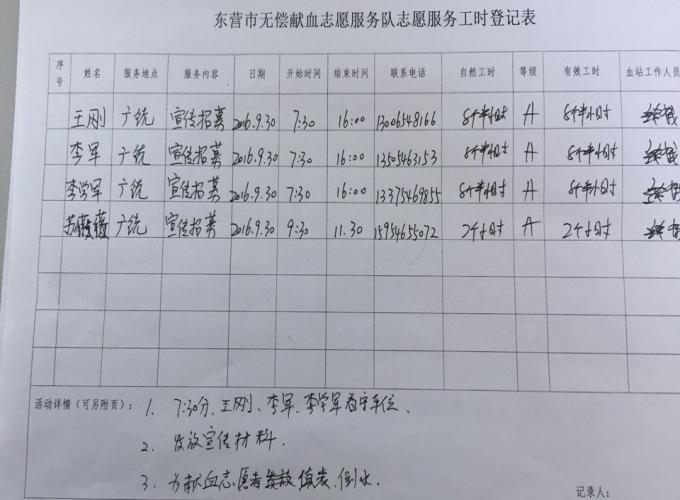 东营市无偿献血志愿服务队志愿服务工时登记表
序号 姓名 服务地点 服务内容 日期 开始时间 结束时间 联系电话 自然工时 等级 有效工时 血站工作人员
王刚 广统 宣传招募 2016.9.30 7:30 16:00 13006548166 8个半小时 A 8个半小时
李军 广统 宣传招募 2016.9.30 7:30 16:00 13505463153 8个半小时 A 8个半小时
李学军 广统 宣传招募 2016.9.30 7:30 16:00 13375469855 8个半小时 A 8个半小时
苏薇薇 广统 宣传招募 2016.9.30 9:30 11.30 15954655072 2个小时 A 2个小时
活动详情（可另附页）： 1. 7:30分、王刚、李军、李学军看守车位.
2. 发放宣传材料.
3. 为献血志愿者 填表、倒水.
记录人：